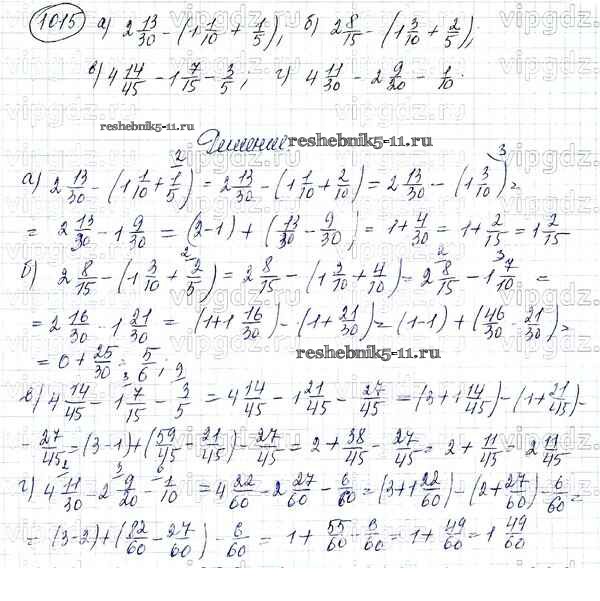 1015 а) 2 13/30 - (1 1/10 + 1/5); б) 2 8/15 - (1 3/10 + 2/5);
в) 4 14/45 - 1 7/15 - 3/5; г) 4 11/30 - 2 9/20 - 1/10.
reshebnik5-11.ru
Решение
reshebnik5-11.ru
а) 2 13/30 - (1 1/10 + 1/5) = 2 13/30 - (1 1/10 + 2/10) = 2 13/30 - (1 3/10) =
= 2 13/30 - 1 9/30 = (2-1) + (13/30 - 9/30) = 1 + 4/30 = 1 + 2/15 = 1 2/15
б) 2 8/15 - (1 3/10 + 2/5) = 2 8/15 - (1 3/10 + 4/10) = 2 8/15 - 1 7/10 =
= 2 16/30 - 1 21/30 = (1+1 16/30) - (1 + 21/30) = (1-1) + (46/30 - 21/30) =
= 0 + 25/30 = 5/6;
reshebnik5-11.ru
в) 4 14/45 - 1 7/15 - 3/5 = 4 14/45 - 1 21/45 - 27/45 = (3+1 14/45) - (1 + 21/45) -
- 27/45 = (3-1) + (59/45 - 21/45) - 27/45 = 2 + 38/45 - 27/45 = 2 + 11/45 = 2 11/45
г) 4 11/30 - 2 9/20 - 1/10 = 4 22/60 - 2 27/60 - 6/60 = (3+1 22/60) - (2 + 27/60) - 6/60 =
= (3-2) + (82/60 - 27/60) - 6/60 = 1 + 55/60 - 6/60 = 1 + 49/60 = 1 49/60